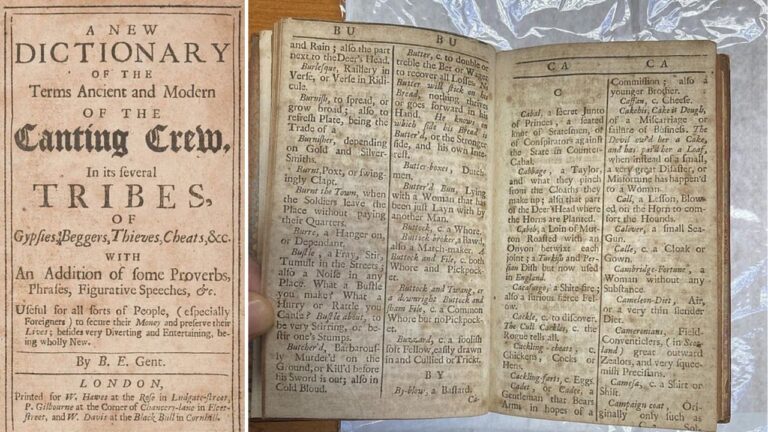 A NEW
DICTIONARY
OF THE
Terms Ancient and Modern
OF THE
Canting Crew,
In its several
TRIBES,
OF
Gypsies, Beggers, Thieves, Cheats, &c.
WITH
An Addition of some Proverbs,
Phrases, Figurative Speeches, &c.
Useful for all sorts of People, (especially
Foreigners) to secure their Money and preserve their
Lives; besides very Diverting and Entertaining, be-
ing wholly New.
By B. E. Gent.
LONDON,
Printed for W. Hawes at the Rose in Ludgate-street,
P. Gilbourne at the Corner of Chancery-lane in Fleet-
street, and W. Davis at the Black Bull in Cornhill.
BU
and Ruin; also the part
next to the Deer's Head.
Burlesque, Raillery in
Verse, or Verse in Ridi-
cule.
Burnish, to spread, or
grow broad; also to
refresh Plate, being the
Trade of a
Burnisher, depending
on Gold and Silver-
Smiths.
Burnt, Poxt, or swing-
ingly Clapt.
Burnt the Town, when
the Soldiers leave the
Place without paying
their Quarters.
Burre, a Hanger on,
or Dependant.
Bustle, a Fray, Stir,
Tumult in the Streets;
also a Noise in any
Place. What a Bustle
you make? What a
Hurry or Rattle you
Cause? Bustle about, to
be very Stirring, or be-
stir one's Stumps.
Butcher'd, Barbarous-
ly Murder'd on the
Ground, or Kill'd before
his Sword is out; also in
Cold Blood.
BU
Butter, c. to double or
treble the Bet or Wager
to recover all Losses. No
Butter will stick on his
Bread, nothing thrives
or goes forward in his
Hand. He knows on
which side his Bread is
Butter'd, or the stronger
side, and his own Inte-
rest.
Butter-boxes, Dutch-
men.
Butter'd Bun, Lying
with a Woman that has
been just Layn with by
another Man.
Buttock, c. a Whore.
Buttock broker, a Bawd,
also a Match-maker. A
Buttock and File, c. both
Whore and Pickpock-
et.
Buttock and Twang, or
a downright Buttock and
sham File, c. a Common
Whore but no Pickpock-
et.
Buzzard, c. a foolish
soft Fellow, easily drawn
in and Cullied or Trickt.
BY
By-blow, a Bastard.
CA
C
Cabal, a secret Junto
of Princes, a seated
knot of Statesmen, or
of Conspirators against
the State in Counter-
Cabal.
Cabbage, a Taylor,
and what they pinch
from the Cloaths they
make up; also that part
of the Deer's Head where
the Horns are Planted.
Cabob, a Loin of Mut-
ton Roasted with an
Onyon betwixt each
joint; a Turkish and Per-
sian Dish but now used
in England.
Cacafuego, a Shite-fire;
also a furious fierce Fel-
low.
Cackle, c. to discover.
The Cull Cackles, c. the
Rogue tells all.
Cackling-cheats, c.
Chickens, Cocks or
Hens.
Cackling-farts, c. Eggs.
Cadet, or Cadee, a
Gentleman that Bears
Arms in hopes of a
CA
Commission; also a
younger Brother.
Caffan, c. Cheese.
Cakehis, Cake is Dough,
of a Miscarriage or
failure of Business. The
Devil ow'd her a Cake,
and has pai'd her a Loaf,
when instead of a small,
a very great Disaster, or
Misfortune has happen'd
to a Woman.
Call, a Lesson, Blow-
ed on the Horn to com-
fort the Hounds.
Calever, a small Sea-
Gun.
Calle, c. a Cloak or
Gown.
Cambridge-Fortune, a
Woman without any
Substance.
Cameleon-Diet, Air,
or a very thin slender
Diet.
Cameronians, Field-
Conventiclers, (in Scot-
land) great outward
Zealots, and very squee-
mish Precisians.
Camesa, c. a Shirt or
Shift.
Campaign coat, Ori-
ginally only such as